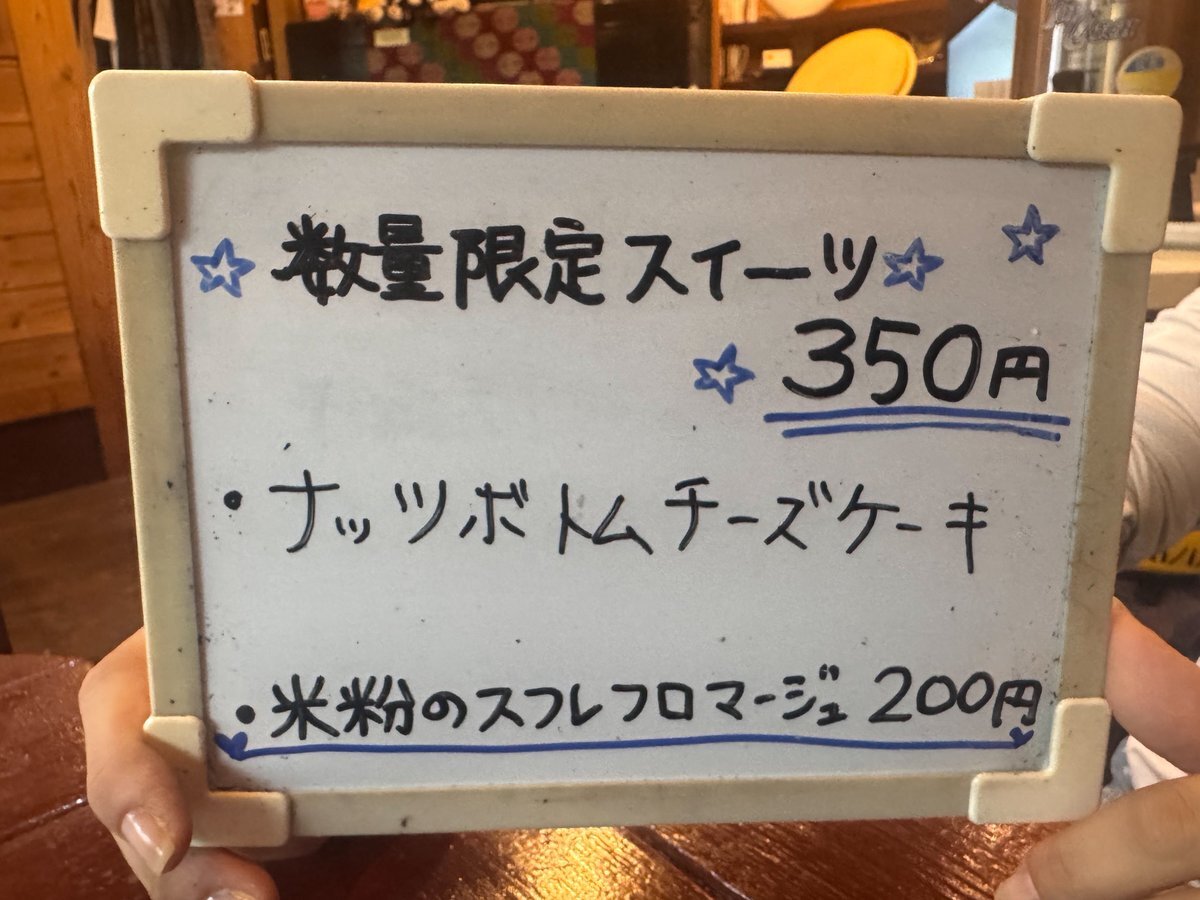 ☆数量限定スイーツ☆ ☆
☆350円
・ナッツボトムチーズケーキ
・米粉のスフレフロマージュ 200円